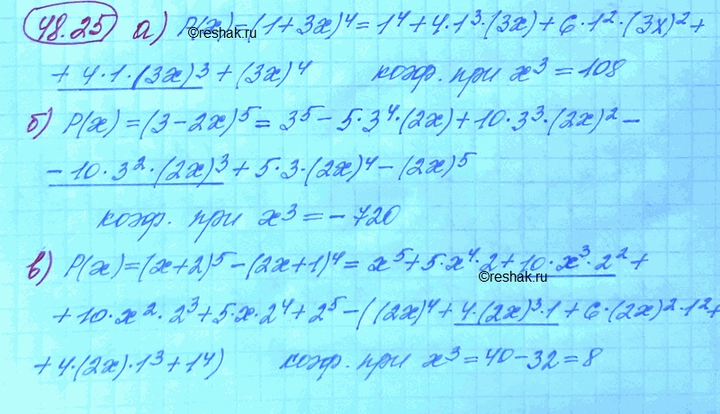 48.25 а) P(x)=(1+3x)⁴=1⁴+4·1³·(3x)+6·1²·(3x)²+
+4·1·(3x)³+(3x)⁴ коэф. при x³=108
б) P(x)=(3-2x)⁵=3⁵-5·3⁴·(2x)+10·3³·(2x)²-
-10·3²·(2x)³+5·3·(2x)⁴-(2x)⁵
коэф. при x³=-720
в) P(x)=(x+2)⁵-(2x+1)⁴=x⁵+5·x⁴·2+10·x³·2²+
+10·x²·2³+5·x·2⁴+2⁵-((2x)⁴+4·(2x)³·1+6·(2x)²·1²+
+4·(2x)·1³+1⁴) коэф. при x³=40-32=8
©reshak.ru
©reshak.ru